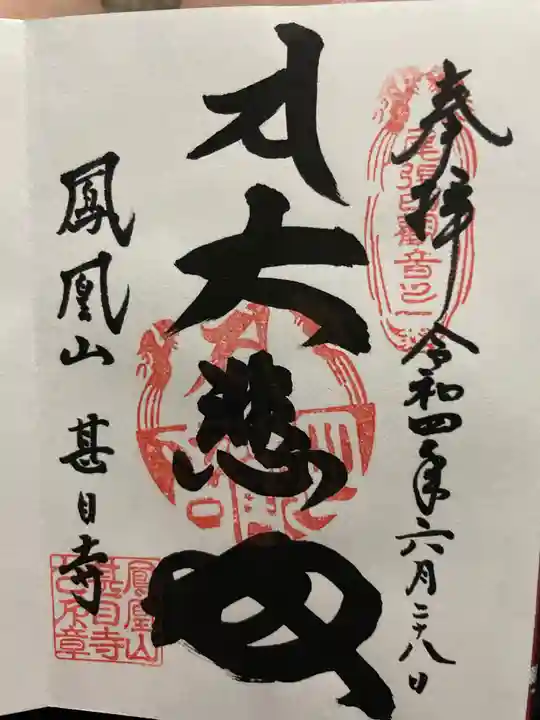 奉拝 令和四年六月二十八日
尾張四観音之一
大悲
鳳凰山 甚目寺
鳳凰山
甚目寺
之印章